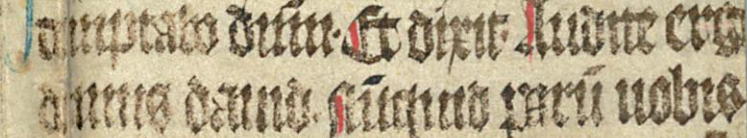 temptabo dn̄m· Et dixit· Audite erg
domus dauid· Nūquid parū uobis